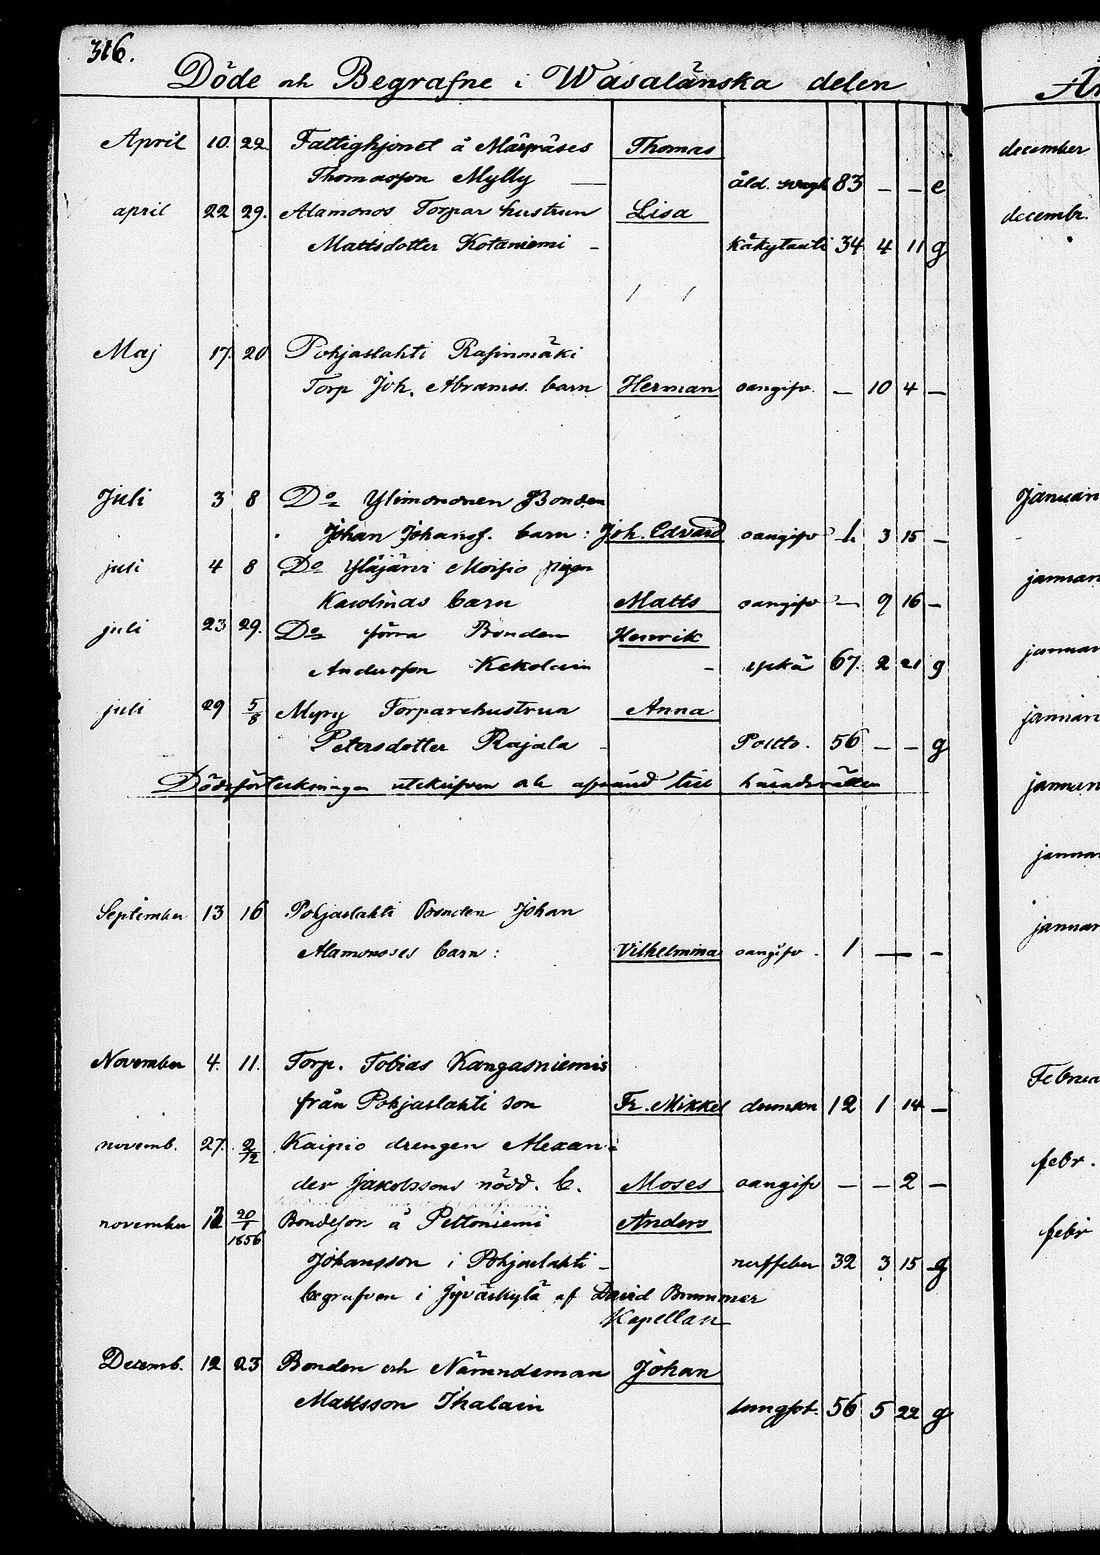 316.
Döde och Begrafne i Wasalänska delen
April 10. 22. Fattighjonet å Märpäses Thomas
Thomasson Mylly — åld. svagh 83 — — e
april 22 29. Alamonos Torpar hustrun Lisa
Mattsdotter Kotaniemi - 34 4 11 g
Maj 17. 20 Pohjaslahti Rasinmäki
Torp Joh. Abramss. barn Herman oangifv. — 10 4 —
Juli 3 8 Do Ylimononen Bonden
Johan Johansf. barn: Joh. Edvard oangifv 1 3 15 —
juli 4 8 Do Yläjärvi Moisio pigan
Karolinas barn Matts oangifv — 9 16 —
juli 23 29. Do förra Bonden Henrik
Andersson Kekolain - yskä 67. 2 21 g
juli 29 5/8 Myry Torparehustrun Anna
Petersdotter Rajala - 56 — — g
Dödsförteckningen utskrifven och afsänd till häradsrätten
September 13 16 Pohjaslahti Bonden Johan
Alamonoses barn: Vilhelmina oangifv. 1 — -
November 4. 11. Torp. Tobias Kangasniemis
från Pohjaslahti son Fr. Mikkel 12 1 14 —
novemb. 27. 2/12 Kaipio drengen Alexan-
der Jakobssons nödd. b. Moses oangifv — — 2 —
november 12 20/1 1856 Bondeson å Peltoniemi Anders
Johansson i Pohjaslahti - nerffeber 32 3 15 g
begrafven i Jyväskylä af David Brummer
Kapellan
Decemb. 12 23 Bonden och Nämndeman Johan
Mattsson Ihalain lungsot. 56 5 22 g
År
december
decembr.
Januari
januari
januari
januari
januari
januari
januari
Februari
febr.
febr